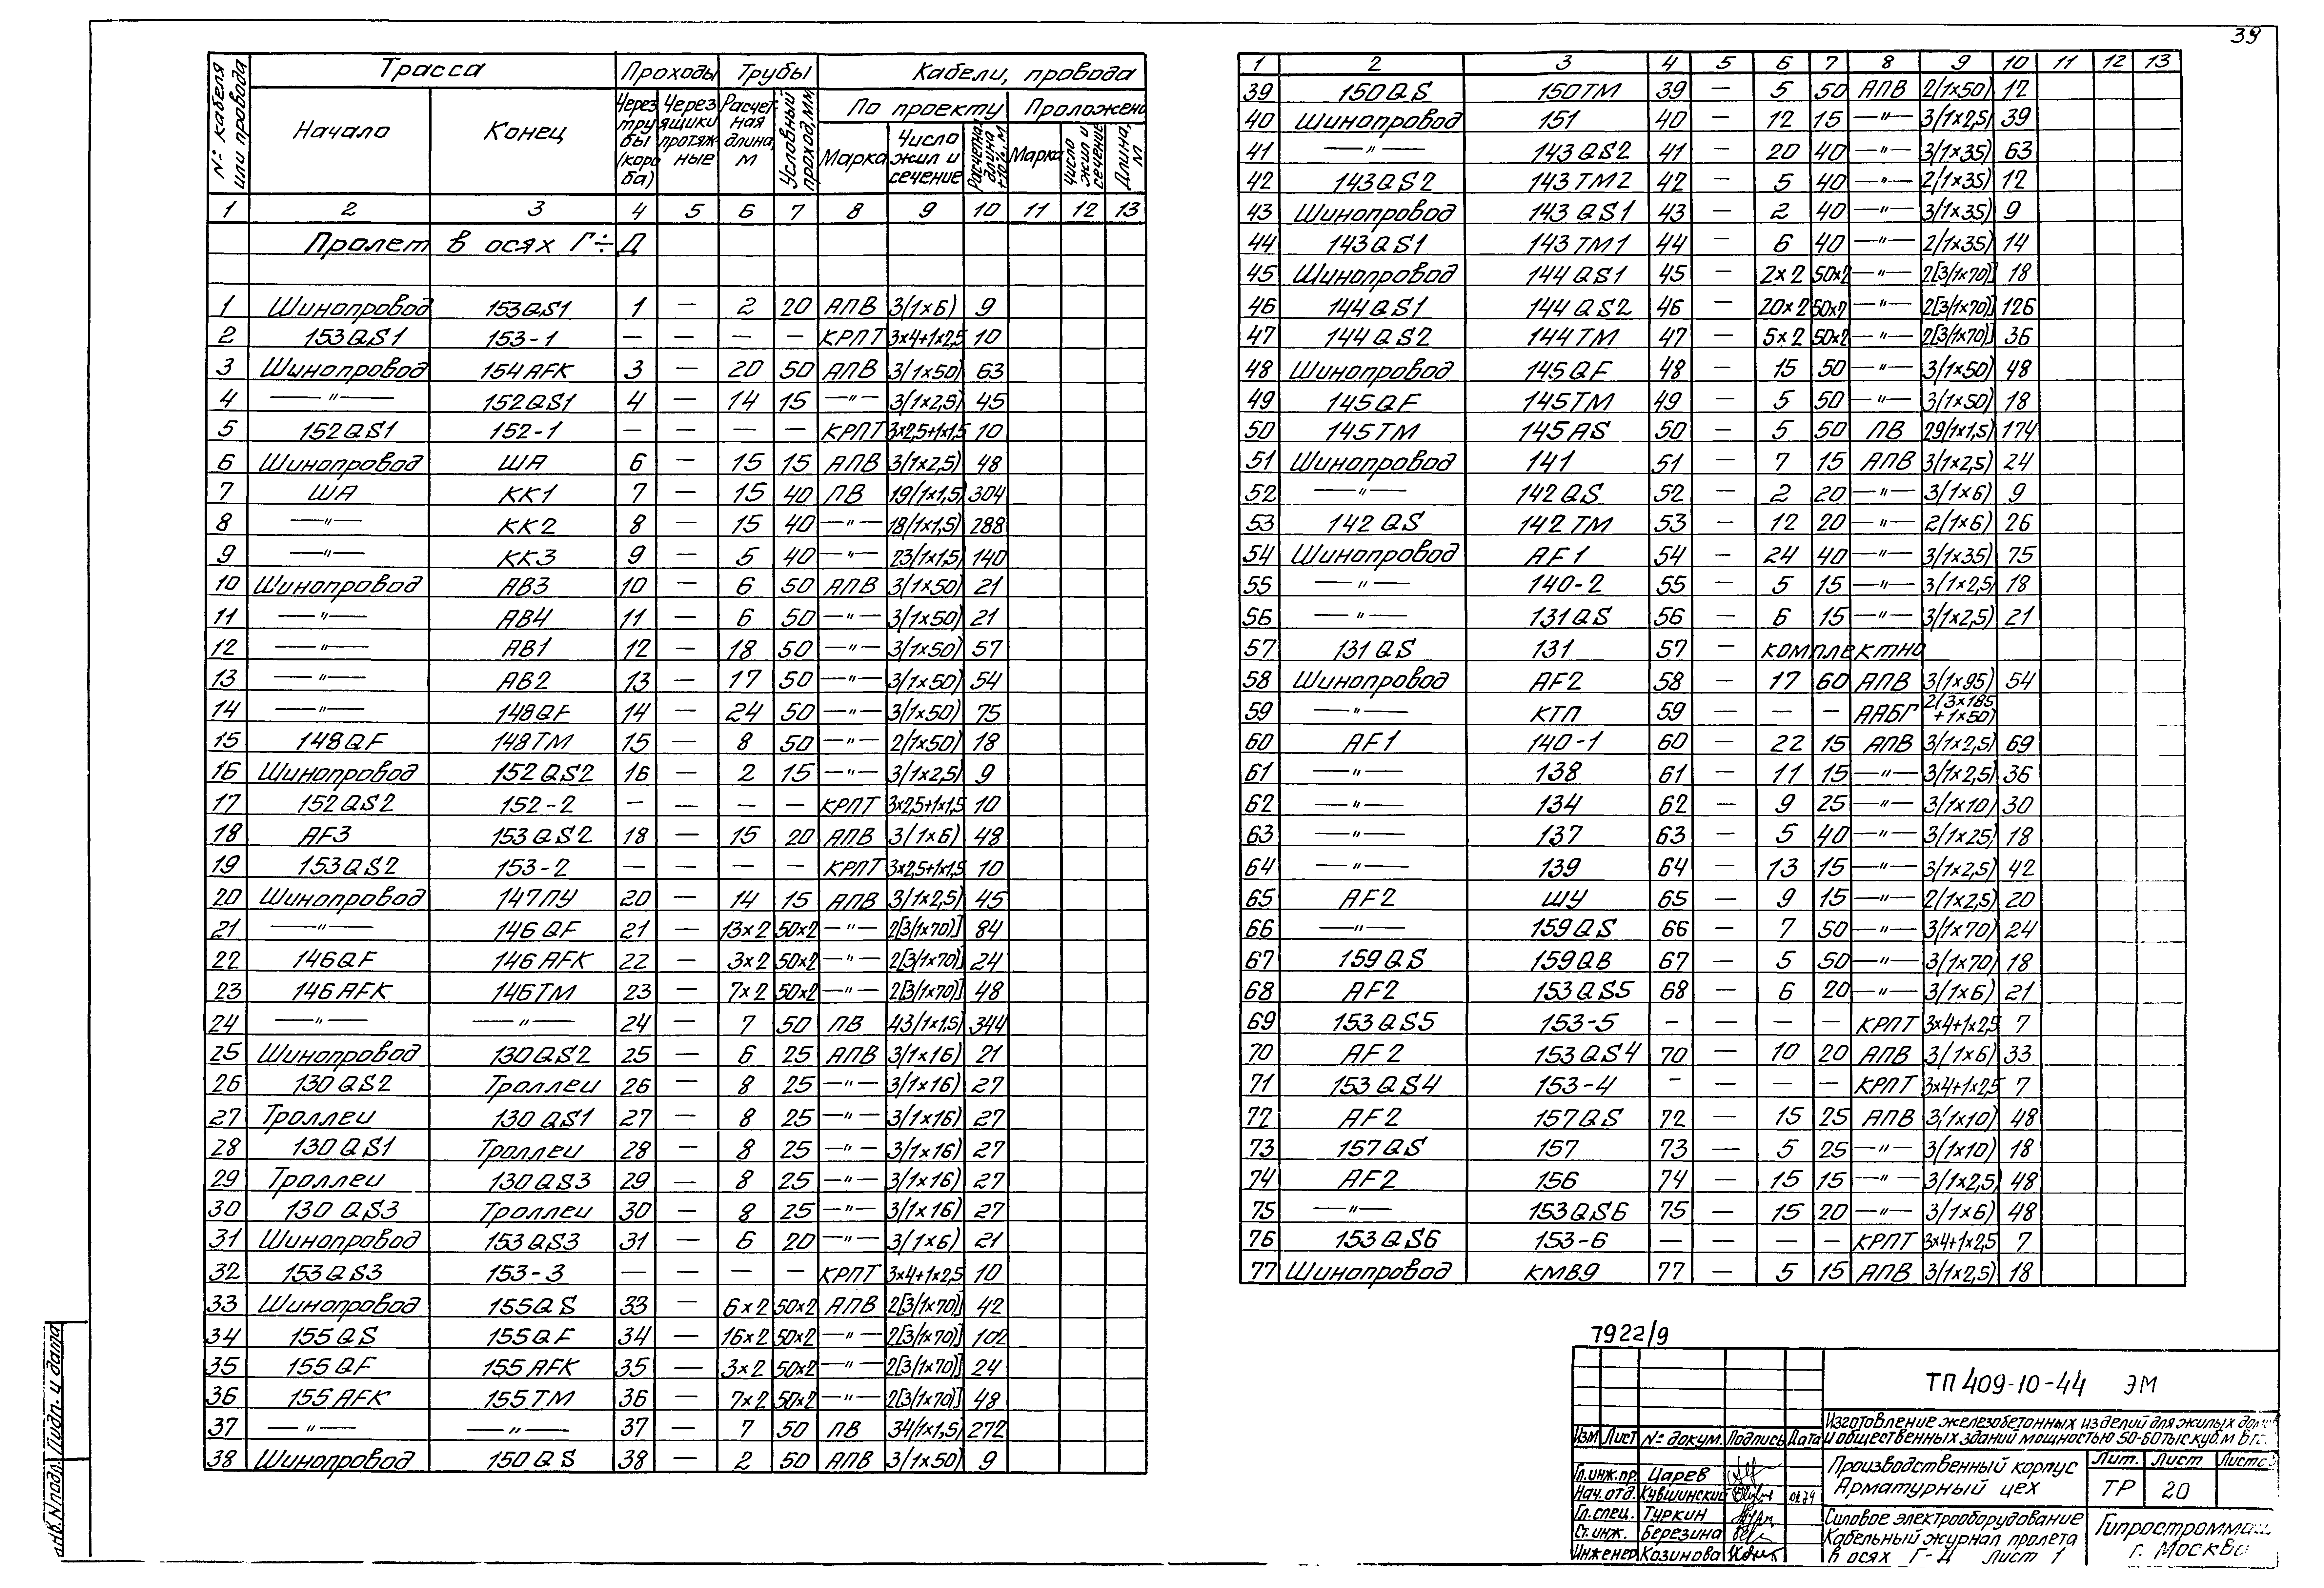 39
№ кабеля или провода | Трасса | Проходы | Трубы | Кабели, провода
Начало | Конец | Через трубы (короба) | Через ящики протяжные | Расчетная длина, м | Условный проход, мм | По проекту | Проложено
Марка | Число жил и сечение | Расчетная длина +10%, м | Марка | Число жил и сечение | Длина, м
1 2 3 4 5 6 7 8 9 10 11 12 13
Пролет в осях Г÷Д
1 Шинопровод 153QS1 1 — 2 20 АПВ 3(1×6) 9
2 153QS1 153-1 — — — — КРПТ 3×4+1×2,5 10
3 Шинопровод 154AFK 3 — 20 50 АПВ 3(1×50) 63
4 —"— 152QS1 4 — 14 15 —"— 3(1×2,5) 45
5 152QS1 152-1 — — — — КРПТ 3×2,5+1×1,5 10
6 Шинопровод ША 6 — 15 15 АПВ 3(1×2,5) 48
7 ША КК1 7 — 15 40 ПВ 19(1×1,5) 304
8 —"— КК2 8 — 15 40 —"— 18(1×1,5) 288
9 —"— КК3 9 — 5 40 —"— 23(1×1,5) 140
10 Шинопровод АВ3 10 — 6 50 АПВ 3(1×50) 21
11 —"— АВ4 11 — 6 50 —"— 3(1×50) 21
12 —"— АВ1 12 — 18 50 —"— 3(1×50) 57
13 —"— АВ2 13 — 17 50 —"— 3(1×50) 54
14 —"— 148QF 14 — 24 50 —"— 3(1×50) 75
15 148QF 148ТМ 15 — 8 50 —"— 2(1×50) 18
16 Шинопровод 152QS2 16 — 2 15 —"— 3(1×2,5) 9
17 152QS2 152-2 — — — — КРПТ 3×2,5+1×1,5 10
18 AF3 153QS2 18 — 15 20 АПВ 3(1×6) 48
19 153QS2 153-2 — — — — КРПТ 3×2,5+1×1,5 10
20 Шинопровод 147ПУ 20 — 14 15 АПВ 3(1×2,5) 45
21 —"— 146QF 21 — 13×2 50×2 —"— 2[3(1×70)] 84
22 146QF 146AFK 22 — 3×2 50×2 —"— 2[3(1×70)] 24
23 146AFK 146ТМ 23 — 7×2 50×2 —"— 2[3(1×70)] 48
24 —"— —"— 24 — 7 50 ПВ 43(1×1,5) 344
25 Шинопровод 130QS2 25 — 6 25 АПВ 3(1×16) 21
26 130QS2 Троллеи 26 — 8 25 —"— 3(1×16) 27
27 Троллеи 130QS1 27 — 8 25 —"— 3(1×16) 27
28 130QS1 Троллеи 28 — 8 25 —"— 3(1×16) 27
29 Троллеи 130QS3 29 — 8 25 —"— 3(1×16) 27
30 130QS3 Троллеи 30 — 8 25 —"— 3(1×16) 27
31 Шинопровод 153QS3 31 — 6 20 —"— 3(1×6) 21
32 153QS3 153-3 — — — — КРПТ 3×4+1×2,5 10
33 Шинопровод 155QS 33 — 6×2 50×2 АПВ 2[3(1×70)] 42
34 155QS 155QF 34 — 16×2 50×2 —"— 2[3(1×70)] 102
35 155QF 155AFK 35 — 3×2 50×2 —"— 2[3(1×70)] 24
36 155AFK 155ТМ 36 — 7×2 50×2 —"— 2[3(1×70)] 48
37 —"— —"— 37 — 7 50 ПВ 34(1×1,5) 272
38 Шинопровод 150QS 38 — 2 50 АПВ 3(1×50) 9
1 2 3 4 5 6 7 8 9 10 11 12 13
39 150QS 150ТМ 39 — 5 50 АПВ 2(1×50) 12
40 Шинопровод 151 40 — 12 15 —"— 3(1×2,5) 39
41 —"— 143QS2 41 — 20 40 —"— 3(1×35) 63
42 143QS2 143ТМ2 42 — 5 40 —"— 2(1×35) 12
43 Шинопровод 143QS1 43 — 2 40 —"— 3(1×35) 9
44 143QS1 143ТМ1 44 — 6 40 —"— 2(1×35) 14
45 Шинопровод 144QS1 45 — 2×2 50×2 —"— 2[3(1×70)] 18
46 144QS1 144QS2 46 — 20×2 50×2 —"— 2[3(1×70)] 126
47 144QS2 144ТМ 47 — 5×2 50×2 —"— 2[3(1×70)] 36
48 Шинопровод 145QF 48 — 15 50 —"— 3(1×50) 48
49 145QF 145ТМ 49 — 5 50 —"— 3(1×50) 18
50 145ТМ 145AS 50 — 5 50 ПВ 29(1×1,5) 174
51 Шинопровод 141 51 — 7 15 АПВ 3(1×2,5) 24
52 —"— 142QS 52 — 2 20 —"— 3(1×6) 9
53 142QS 142ТМ 53 — 12 20 —"— 2(1×6) 26
54 Шинопровод AF1 54 — 24 40 —"— 3(1×35) 75
55 —"— 140-2 55 — 5 15 —"— 3(1×2,5 18
56 —"— 131QS 56 — 6 15 —"— 3(1×2,5) 21
57 131QS 131 57 — комплектно
58 Шинопровод AF2 58 — 17 60 АПВ 3(1×95) 54
59 —"— КТП 59 — — — ААБГ 2(3×185+1×50)
60 AF1 140-1 60 — 22 15 АПВ 3(1×2,5) 69
61 —"— 138 61 — 11 15 —"— 3(1×2,5) 36
62 —"— 134 62 — 9 25 —"— 3(1×10) 30
63 —"— 137 63 — 5 40 —"— 3(1×25) 18
64 —"— 139 64 — 13 15 —"— 3(1×2,5) 42
65 AF2 ШУ 65 — 9 15 —"— 2(1×2,5) 20
66 —"— 159QS 66 — 7 50 —"— 3(1×70) 24
67 159QS 159QB 67 — 5 50 —"— 3(1×70) 18
68 AF2 153QS5 68 — 6 20 —"— 3(1×6) 21
69 153QS5 153-5 - — — — КРПТ 3×4+1×2,5 7
70 AF2 153QS4 70 — 10 20 АПВ 3(1×6) 33
71 153QS4 153-4 - — — — КРПТ 3×4+1×2,5 7
72 AF2 157QS 72 — 15 25 АПВ 3(1×10) 48
73 157QS 157 73 — 5 25 —"— 3(1×10) 18
74 AF2 156 74 — 15 15 —"— 3(1×2,5) 48
75 —"— 153QS6 75 — 15 20 —"— 3(1×6) 48
76 153QS6 153-6 — — — — КРПТ 3×4+1×2,5 7
77 Шинопровод КМВ9 77 — 5 15 АПВ 3(1×2,5) 18
7922/9
ТП 409-10-44 ЭМ
Изготовление железобетонных изделий для жилых домов
и общественных зданий мощностью 50-60 тыс.куб.м в г.
Изм Лист № докум. Подпись Дата
Гл.инж.пр. Царев
Нач.отд. Кувшинский
Гл.спец. Туркин
Ст.инж. Березина
Инженер Козинова
Производственный корпус
Арматурный цех
Лит. Лист Листов
ТР 20
Силовое электрооборудование
Кабельный журнал пролета
в осях Г-Д Лист 1
Гипростроммаш
г. Москва
Инв.№подл. Подп. и дата